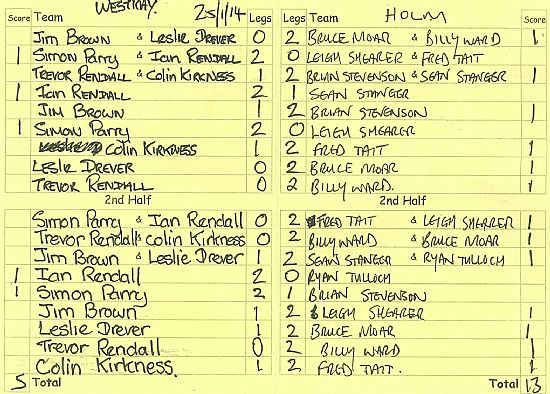 WESTRAY. 25/1/14 HOLM
Score Team Legs Legs Team Score
Jim Brown & Leslie Drever 0 2 Bruce Moar & Billy Ward 1
1 Simon Parry & Ian Rendall 2 0 Leigh Shearer & Fred Tait
Trevor Rendall & Colin Kirkness 1 2 Brian Stevenson & Sean Stanger 1
1 Ian Rendall 2 1 Sean Stanger
Jim Brown 1 2 Brian Stevenson 1
1 Simon Parry 2 0 Leigh Shearer
Colin Kirkness 1 2 Fred Tait 1
Leslie Drever 0 2 Bruce Moar 1
Trevor Rendall 0 2 Billy Ward. 1
2nd Half 2nd Half
Simon Parry & Ian Rendall 0 2 Fred Tait & Leigh Shearer 1
Trevor Rendall & Colin Kirkness 0 2 Billy Ward & Bruce Moar 1
Jim Brown & Leslie Drever 1 2 Sean Stanger & Ryan Tulloch 1
1 Ian Rendall 2 0 Ryan Tulloch
1 Simon Parry 2 1 Brian Stevenson
Jim Brown 1 2 Leigh Shearer 1
Leslie Drever 1 2 Bruce Moar 1
Trevor Rendall 0 2 Billy Ward 1
Colin Kirkness. 1 2 Fred Tait. 1
5 Total Total 13